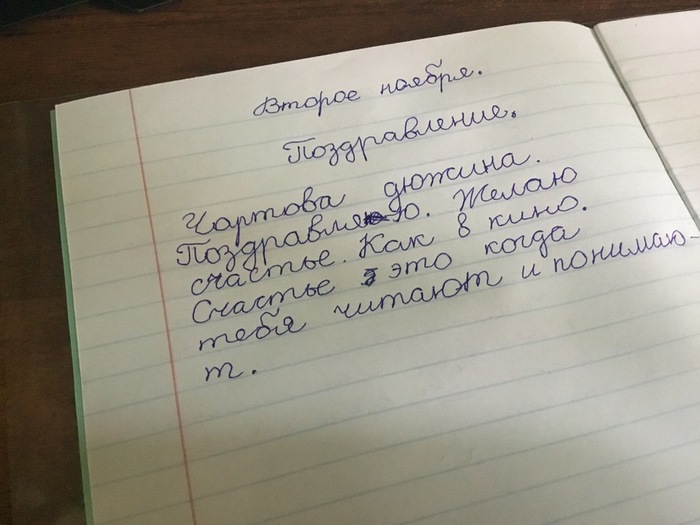 Второе ноября.
Поздравление.
Чартова дюжина.
Поздравляю. Желаю
счастье. Как в кино.
Счастье это когда
тебя читают и понимаю-
т.